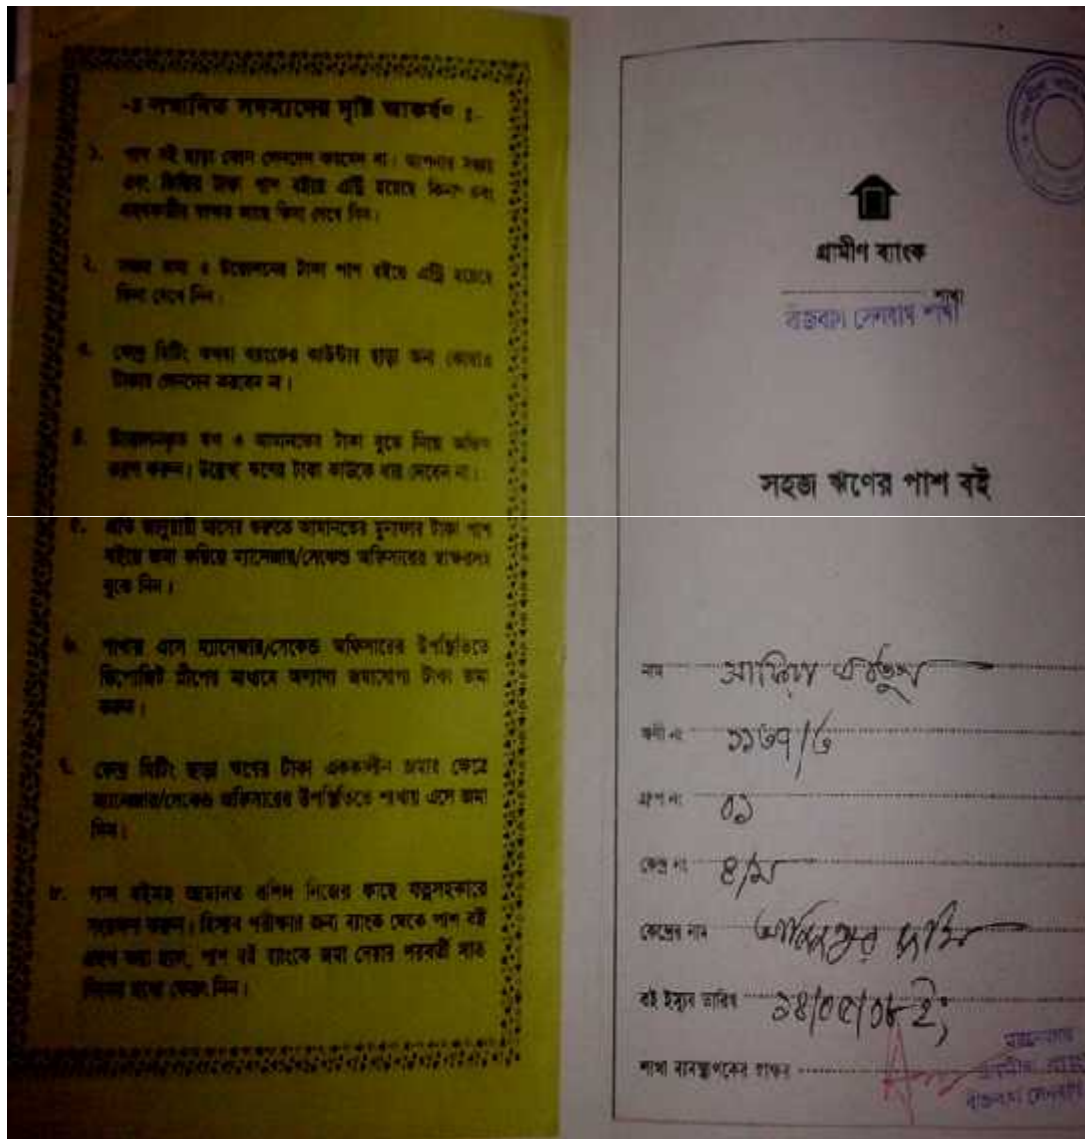 -ঃ সম্মানিত সদস্যদের দৃষ্টি আকর্ষণ ঃ-
১. পাশ বই ছাড়া কোন লেনদেন করবেন না। আপনার সঞ্চয়
এবং কিস্তির টাকা পাশ বইয়ে এন্ট্রি হয়েছে কিনা এবং
গ্রহণকারীর স্বাক্ষর আছে কিনা দেখে নিন।
২. সঞ্চয় জমা ও উত্তোলনের টাকা পাশ বইয়ে এন্ট্রি হয়েছে
কিনা দেখে নিন।
৩. কেন্দ্র মিটিং অথবা ব্যাংকের কাউন্টার ছাড়া অন্য কোথাও
টাকার লেনদেন করবেন না।
৪. উত্তোলনকৃত ঋণ ও আমানতের টাকা বুঝে নিয়ে অফিস
ত্যাগ করুন। উল্লেখ্য ঋণের টাকা কাউকে ধার দেবেন না।
৫. প্রতি জানুয়ারী মাসের শুরুতে আমানতের মুনাফার টাকা পাশ
বইয়ে জমা করিয়ে ম্যানেজার/সেকেন্ড অফিসারের স্বাক্ষরসহ
বুঝে নিন।
৬. শাখায় এসে ম্যানেজার/সেকেন্ড অফিসারের উপস্থিতিতে
ডিপোজিট স্লীপের মাধ্যমে অন্যান্য জমাযোগ্য টাকা জমা
করুন।
৭. কেন্দ্র মিটিং ছাড়া ঋণের টাকা এককালীন জমার ক্ষেত্রে
ম্যানেজার/সেকেন্ড অফিসারের উপস্থিতিতে শাখায় এসে জমা
দিন।
৮. পাশ বইসহ আমানত রশিদ নিজের কাছে যত্নসহকারে
সংরক্ষণ করুন। হিসাব পরীক্ষার জন্য ব্যাংক থেকে পাশ বই
গ্রহণ করা হলে, পাশ বই ব্যাংকে জমা নেয়ার পরবর্তী সাত
দিনের মধ্যে ফেরৎ নিন।
গ্রামীণ ব্যাংক
শাখা
সেনবাগ শাখা
সহজ ঋণের পাশ বই
নাম
ঋণী নং ১১৬৭/৬
গ্রুপ নং ০১
কেন্দ্র নং ৪/ম
কেন্দ্রের নাম
বই ইস্যুর তারিখ ১৪/০৫/০৮ ইং
শাখা ব্যবস্থাপকের স্বাক্ষর